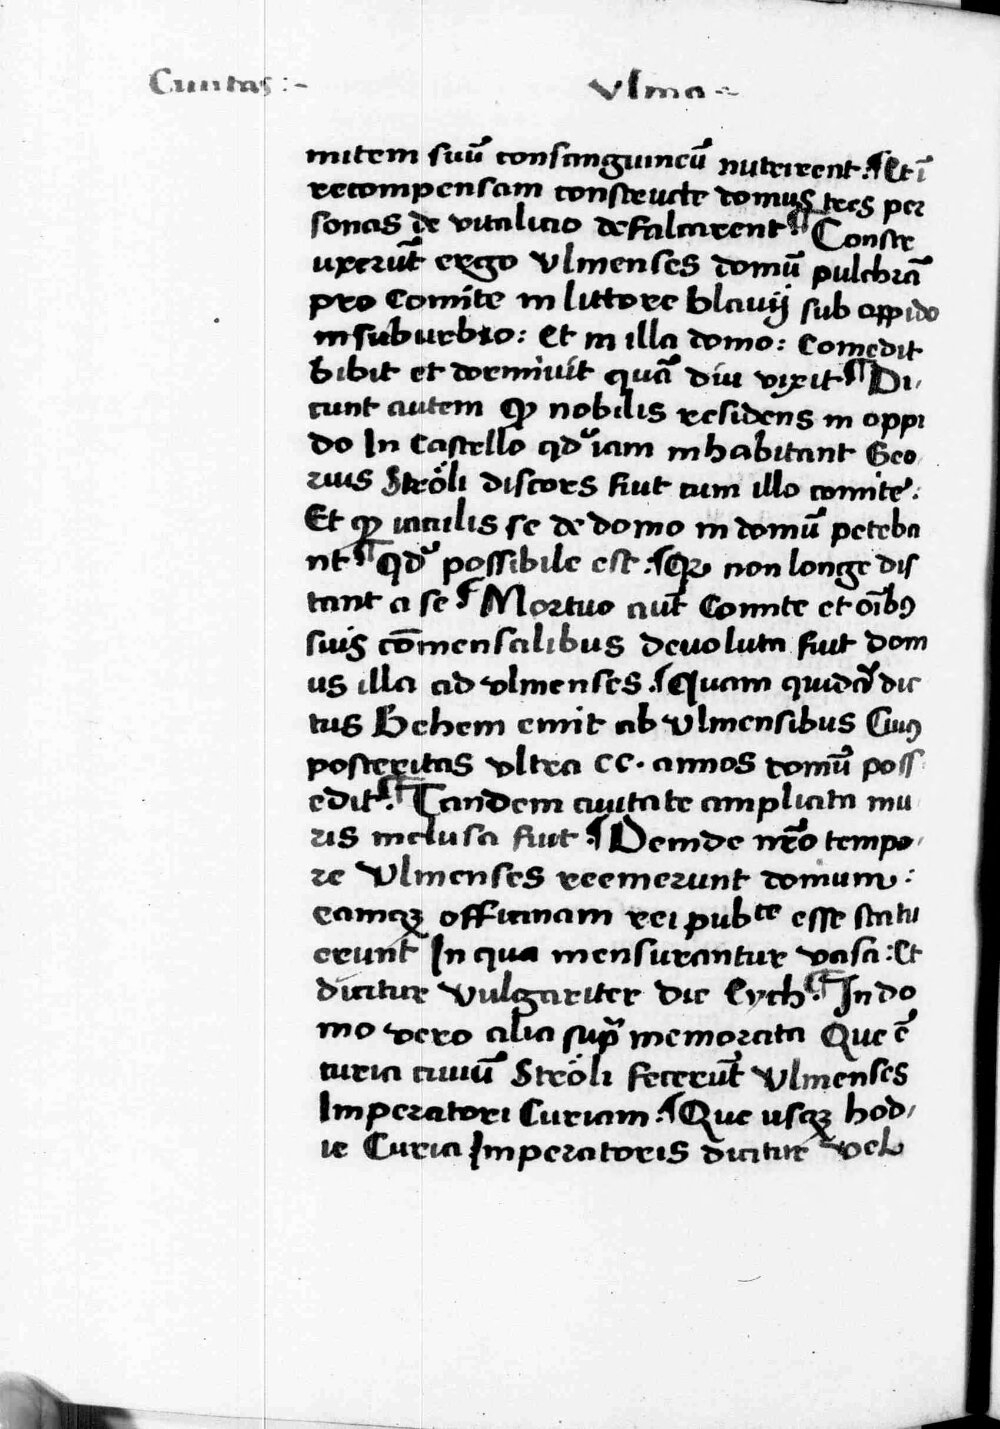 Ciuitas :~ Vlma :~
mitem suū consanguineū nutrirent : ¶ Et ī
recompensam constructe domus tres per
sonas de vitalicio defalcarent ¶ Constr
uxerūt ergo Vlmenses domū pulchrā
pro Comite in littore blauij sub oppido
in suburbio : Et in illa domo : Comedit
bibit et dormiuit quā diu vixit ¶ Di,
cunt autem ꝙ nobilis residens in oppi
do In Castello qd' iam inhabitant Geo
rius Ströli discors fuit cum illo comite :
Et ꝙ iaculis se de domo in domū peteba
nt ¶ Qd' possibile est . ¶ Qꝛ non longe dis
tant a se ¶ Mortuo aūt Comite et oībꝰ
suis cōmensalibus deuoluta fuit dom
us illa ad vlmenses . ¶ Quam quidā dic
tus Behem emit ab Vlmensibus Cuiꝰ
posteritas vltra CC . annos domū poss
edit ¶ Tandem ciuitate ampliata mu
ris inclusa fuit ¶ Deinde nr̄o tempo,
re Vlmenses reemerunt domum :
eamqꝫ officinam rei pubce esse statu
erunt In qua mensurantur vasa : Et
dicitur Vulgariter die Eych ¶ In do
mo vero alia sup̄ memorata Que ē
curia ciuiū Ströli fecerūt Vlmenses
Imperatori Curiam . ¶ Que usqꝫ hod,
ie Curia Imperatoris dicitur vel